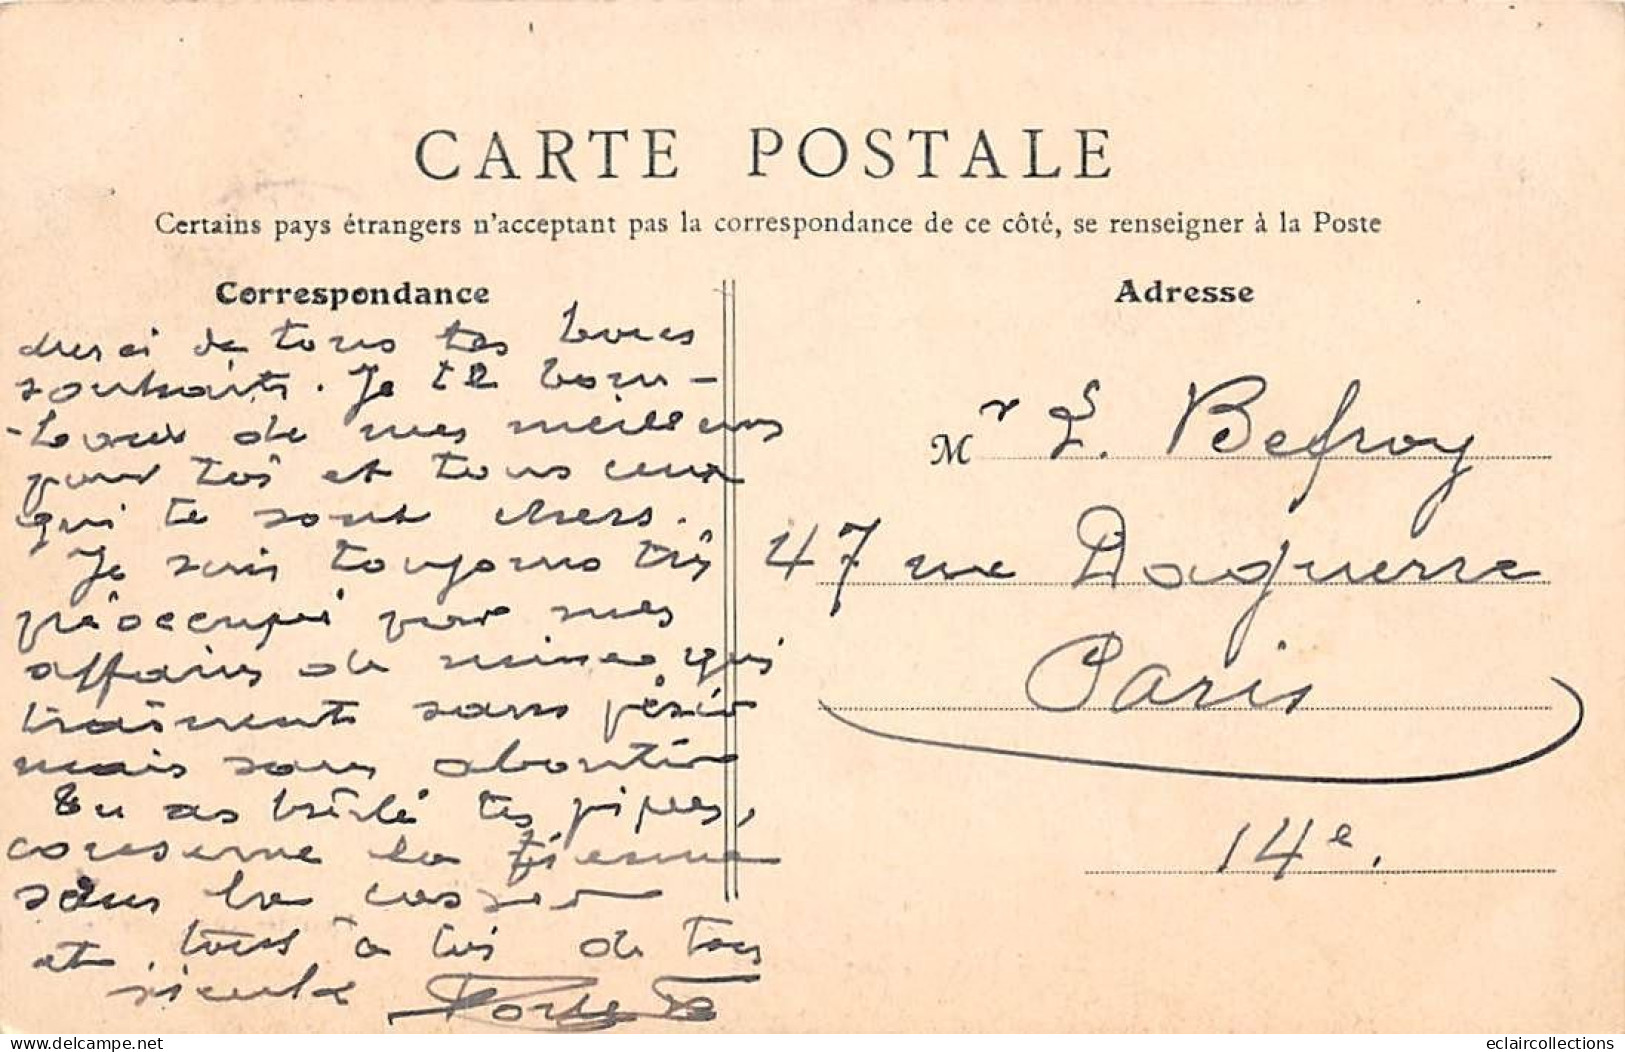 CARTE POSTALE
Certains pays étrangers n'acceptant pas la correspondance de ce côté, se renseigner à la Poste
Correspondance
Adresse
Merci de tous tes bons
souhaits. Je te
de mes meilleurs
pour toi et tous ceux
qui te sont chers.
Je suis toujours très
préoccupé par mes
affaires de mines qui
traînent sans
mais sans aboutir
Tu as brûlé tes pipes,
conserve la tienne
sans la casser
et tous à toi de ton
Mr L. Befroy
47 rue Daguerre
Paris
14e.
eclaircollections